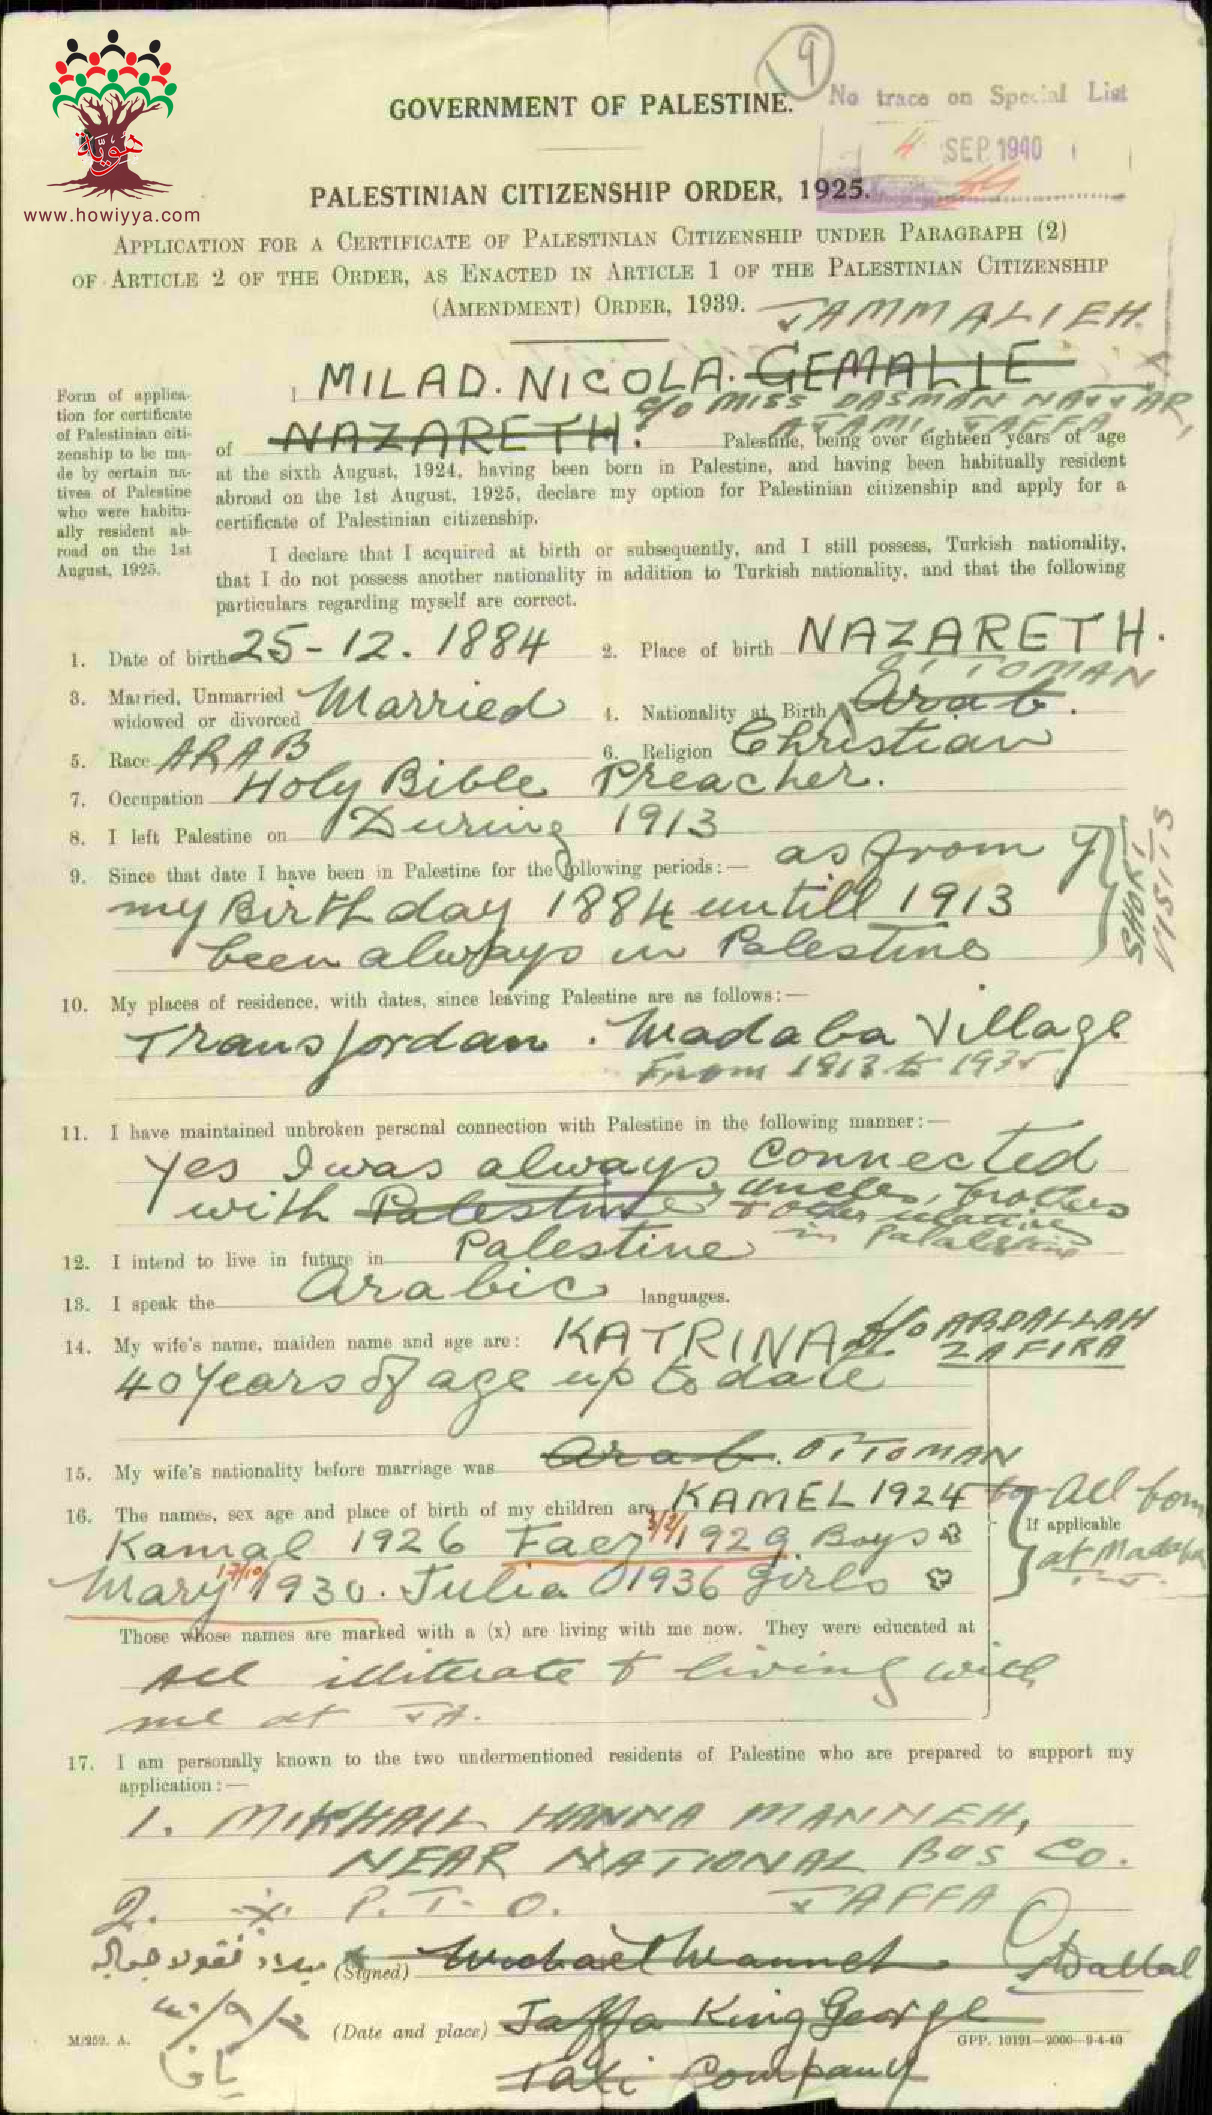 هوية
www.howiyya.com
9
GOVERNMENT OF PALESTINE.
No trace on Special List
4 SEP 1940
PALESTINIAN CITIZENSHIP ORDER, 1925.
APPLICATION FOR A CERTIFICATE OF PALESTINIAN CITIZENSHIP UNDER PARAGRAPH (2)
OF ARTICLE 2 OF THE ORDER, AS ENACTED IN ARTICLE 1 OF THE PALESTINIAN CITIZENSHIP
(AMENDMENT) ORDER, 1939.
JAMMALIEH.
Form of applica-
tion for certificate
of Palestinian citi-
zenship to be ma-
de by certain na-
tives of Palestine
who were habitu-
ally resident ab-
road on the 1st
August, 1925.
I MILAD. NICOLA. GEMALIE
c/o MISS DASMAN NAJJAR,
AJAMI, JAFFA
of NAZARETH. Palestine, being over eighteen years of age
at the sixth August, 1924, having been born in Palestine, and having been habitually resident
abroad on the 1st August, 1925, declare my option for Palestinian citizenship and apply for a
certificate of Palestinian citizenship.
I declare that I acquired at birth or subsequently, and I still possess, Turkish nationality,
that I do not possess another nationality in addition to Turkish nationality, and that the following
particulars regarding myself are correct.
1. Date of birth 25-12. 1884 2. Place of birth NAZARETH.
OTTOMAN
3. Married, Unmarried widowed or divorced Married 4. Nationality at Birth Arab.
5. Race ARAB 6. Religion Christian
7. Occupation Holy Bible Preacher.
8. I left Palestine on During 1913
9. Since that date I have been in Palestine for the following periods:— as from
my Birthday 1884 untill 1913
been always in Palestine
SHORT VISITS
10. My places of residence, with dates, since leaving Palestine are as follows:—
Transjordan. Madaba Village
From 1913 to 1935
11. I have maintained unbroken personal connection with Palestine in the following manner:—
Yes I was always Connected
with Palestine uncles, brothers
& other relatives
in Palalestine
12. I intend to live in future in Palestine
13. I speak the Arabic languages.
14. My wife's name, maiden name and age are: KATRINA d/o ABDALLAH
ZAFIRA
40 Years of age up to date
15. My wife's nationality before marriage was Arab. OTTOMAN
16. The names, sex age and place of birth of my children are KAMEL 1924 boy
Kamal 1926 Faez 1929 Boys
Mary 1930. Julia 1936 Girls
If applicable
All born
at Madaba
Those whose names are marked with a (x) are living with me now. They were educated at
All illiterate & living with
me at JA.
17. I am personally known to the two undermentioned residents of Palestine who are prepared to support my
application:—
1. MIKHAIL HANNA MANNEH,
NEAR NATIONAL BUS Co.
JAFFA
2. x. P.T.O.
ميلاد نقولا جماليه
(Signed) Michael Manneh
(Date and place) Jaffa King George
Taxi Company
يافا
M/252. A.
GPP. 10191—2000—9-4-40